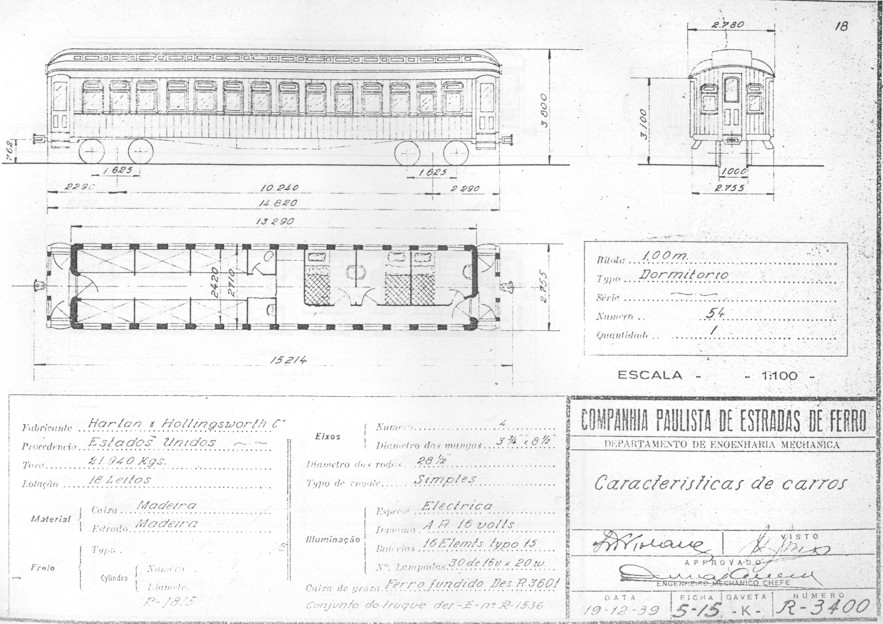 18
2.780
3.800
3.100
762
1.625
1.625
1.000
2290
10.240
2.290
2.755
14.820
13.290
2420
2710
2.755
15.214
Bitola 1,00m.
Typo Dormitorio
Série
Numero 54
Quantidade 1
ESCALA - - 1:100 -
Fabricante Harlan & Hollingsworth Cº
Procedencia Estados Unidos
Tara 21.940 Kgs.
Lotação 18 Leitos
Material
Caixa Madeira
Estrado Madeira
Freio
Typo
Cylindro
Numero
Diametro
R-1815
Eixos
Numero 4
Diametro das mangas 3 3/4 x 8 1/2
Diametro das rodas 28 1/2
Typo de engate Simples
Illuminação
Especie Electrica
Dynamo A R 16 volts
Baterias 16 Elemts typo 15
Nº. Lampadas 30 de 16v x 20 w.
Caixa de graxa Ferro fundido Des. R 3601
Conjunto do truque des-E-nº R-1536
COMPANHIA PAULISTA DE ESTRADAS DE FERRO
DEPARTAMENTO DE ENGENHARIA MECHANICA
Caracteristicas de carros
VISTO
APPROVADO
ENGENHEIRO MECHANICO CHEFE
DATA
19-12-39
FICHA
5-15
GAVETA
-K-
NUMERO
R-3400